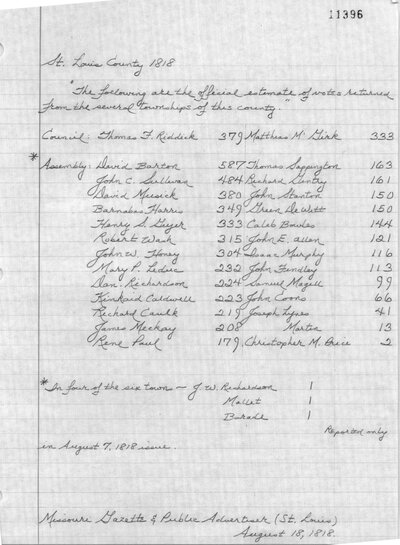 11396
St. Louis County 1818
"The following are the official estemate of votes returned
from the several townships of this county."
Council: Thomas F. Riddick 379 Matthias McGirk 333
* Assembly: David Barton 587 Thomas Sappington 163
John C. Sullivan 484 Richard Gentry 161
David Musick 380 John Stanton 150
Barnabas Harris 349 Green DeWitt 150
Henry S. Geyer 333 Caleb Bowles 144
Robert Wash 315 John E. Allen 121
John W. Honey 304 Isaac Murphy 116
Mary P. Leduc 232 John Findley 113
Dan. Richardson 224 Samuel Magill 99
Kinkaid Caldwell 223 John Coons 66
Richard Caulk 219 Joseph 41
James Mackay 208 Martin 13
Rene Paul 179, Christopher M. Price 2
* In four of the six towns — J. W. Richardson 1
Mallet 1
1
Reported only
in August 7, 1818 issue.
Missouri Gazette & Public Advertiser (St. Louis)
August 18, 1818.